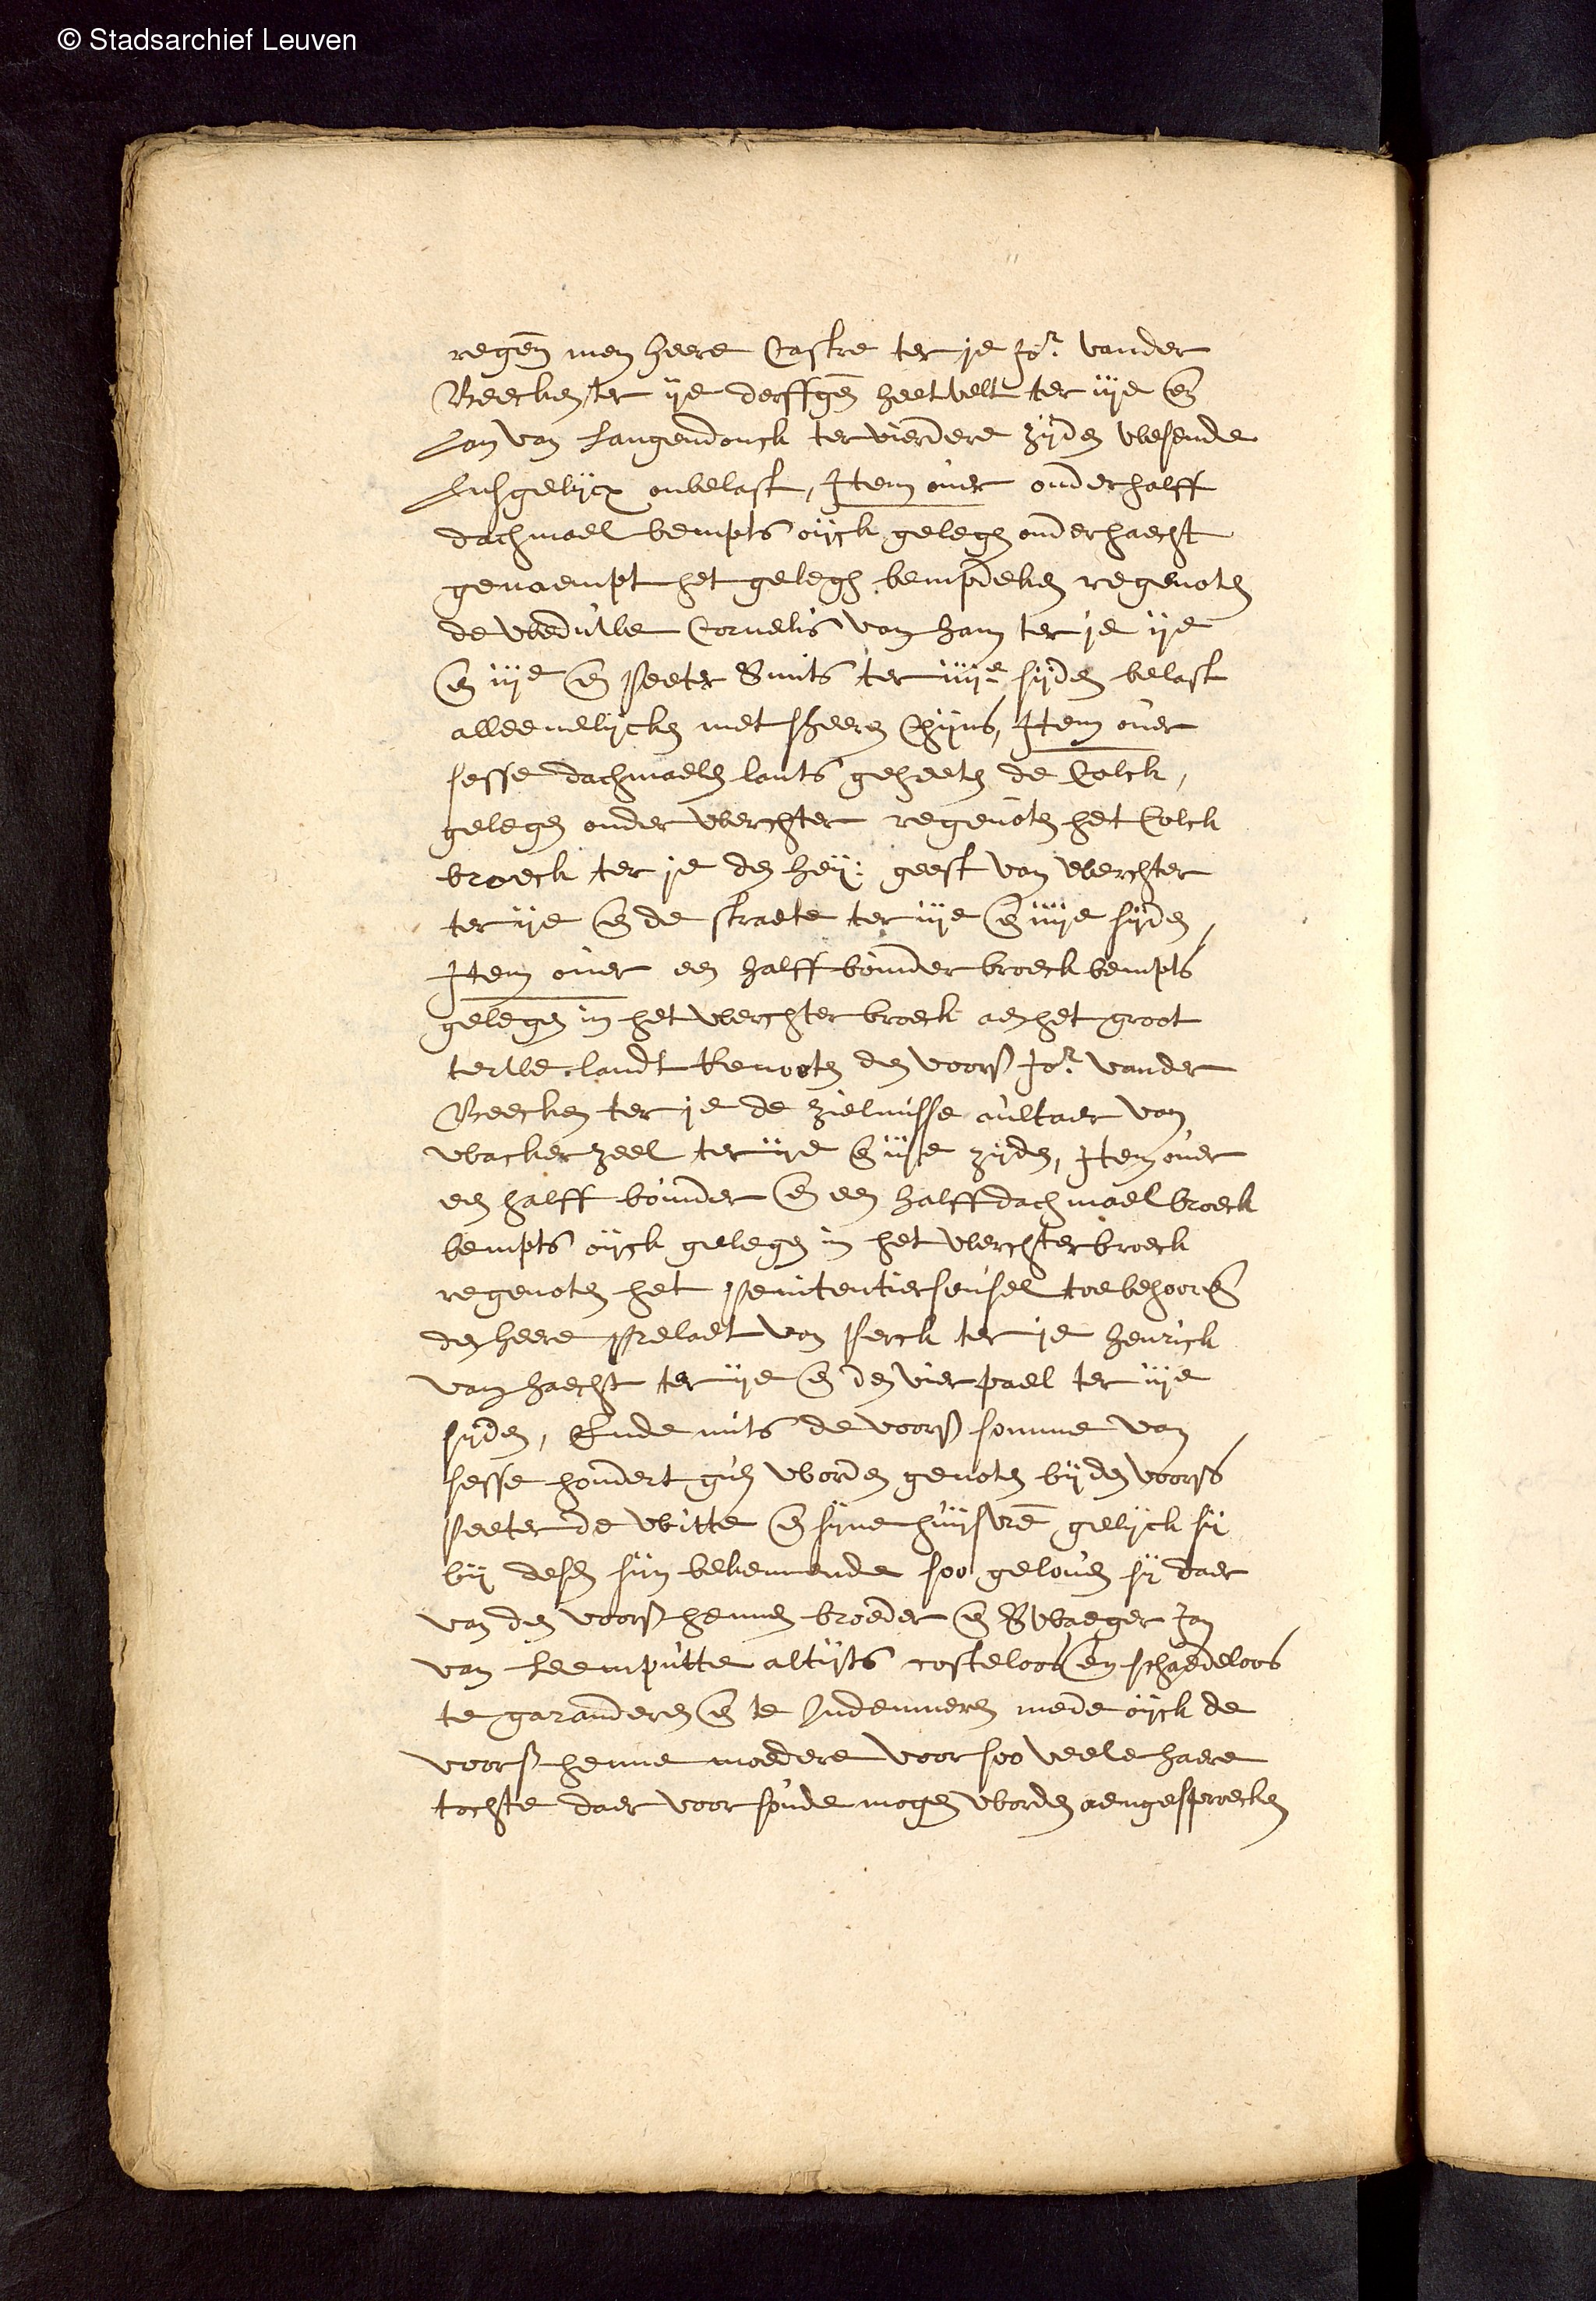 © Stadsarchief Leuven
regen̄ men heere Castre ter je Jor. vander
Beecken, ter ije derffgen̄ heetvelt ter iije en̄
Jan van Langendonck ter vierdere zijden wesende
Insgelijcx onbelast, Item over onderhalff
dachmael bempts oijck gelegen onder haecht
genoempt het gelegh bempdeken regenoten
de weduwe Cornelis van ham ter je ije
en̄ iije en̄ peeter Smits ter iiije sijden belast
alleenelijcken met sheeren Chijns, Item over
sesse dachmaelen lants geheeten de Colck,
gelegen onder werchter regenoten het Colck
broeck ter je den heij: geest van werchter
ter ije en̄ de straete ter iije en̄ iiije sijden,
Item over een halff bounder broeck bempts
gelegen in het werchter broeck aen het groot
landt Renooten den voors Jor. vander
Beecken ter je de zielmisse aultaer van
wackerzeel ter ije en̄ iije zijden, Item over
een halff bounder en̄ een halff dachmael broeck
bempts oijck gelegen in het werchterbroeck
regenoten het toebehooren̄
den heere prelaet van perck ter je henrick
van haecht ter ije en̄ den vierpael ter iije
sijden, Ende mits de voors somme van
sesse hondert guls worden genoten bijden voors
peeter de witte en̄ sijne huijsvre gelijck sij
bij desen sijn bekennende soo geloven sij daer
van den voors hennen broeder en̄ Swaeger Jan
van Leemputte altijts costeloos en̄ schaedeloos
te garanderen en̄ te Indemneren mede oijck de
voors henne moedere voor soo veele haere
tochte daer voor soude mogen worden aengesproecken